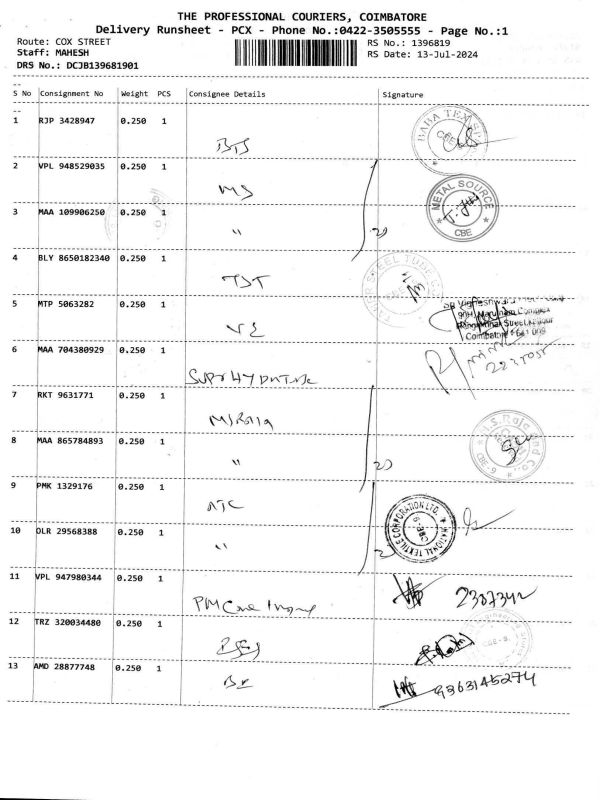 THE PROFESSIONAL COURIERS, COIMBATORE
Delivery Runsheet - PCX - Phone No.:0422-3505555 - Page No.:1
Route: COX STREET
Staff: MAHESH
DRS No.: DCJB139681901
RS No.: 1396819
RS Date: 13-Jul-2024
S No Consignment No Weight PCS Consignee Details Signature
1 RJP 3428947 0.250 1
BTS
BABA TEX
CBE
2 VPL 948529035 0.250 1
MS
METAL SOURCE
CBE
3 MAA 109906250 0.250 1
"
4 BLY 8650182340 0.250 1
TST
STEEL TUBE
5 MTP 5063282 0.250 1
VE
Coimbatore
6 MAA 704380929 0.250 1
7 RKT 9631771 0.250 1
M/S Raja
H.S. Raja and Co.
CBE-9
8 MAA 865784893 0.250 1
"
9 PMK 1329176 0.250 1
NTC
NATIONAL TEXTILE CORPORATION LTD.
10 OLR 29568388 0.250 1
"
11 VPL 947980344 0.250 1
PM Care
12 TRZ 320034480 0.250 1
CBE-9.
13 AMD 28877748 0.250 1
9363145274